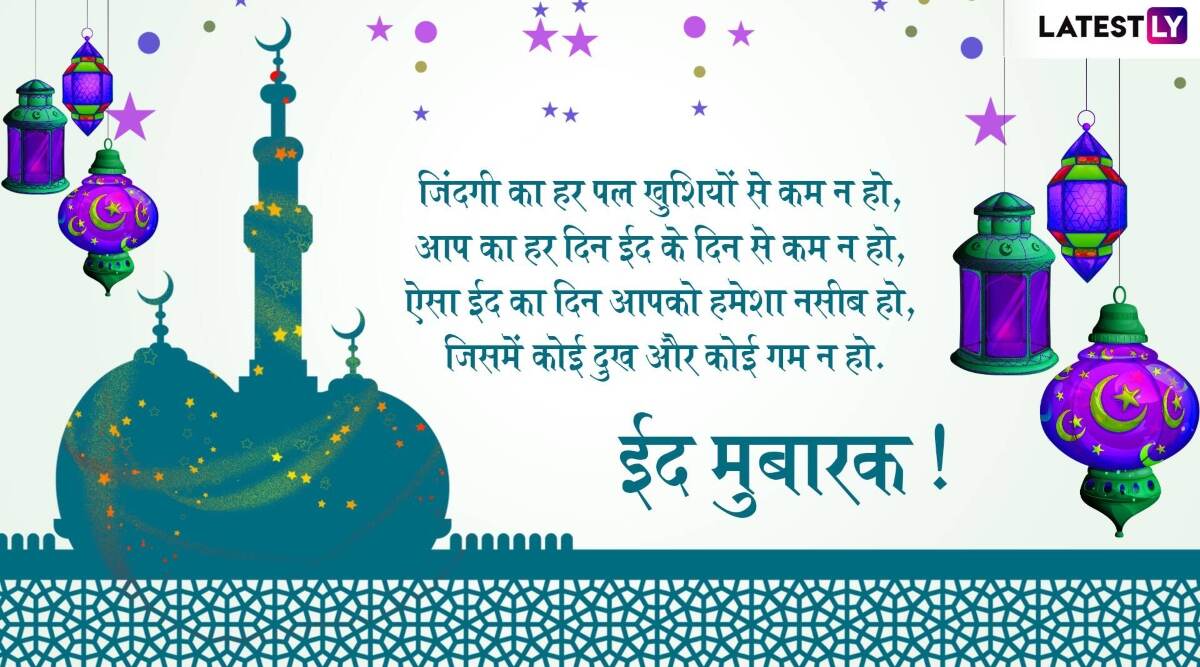 LATESTLY
जिंदगी का हर पल खुशियों से कम न हो,
आप का हर दिन ईद के दिन से कम न हो,
ऐसा ईद का दिन आपको हमेशा नसीब हो,
जिसमें कोई दुख और कोई गम न हो.
ईद मुबारक !